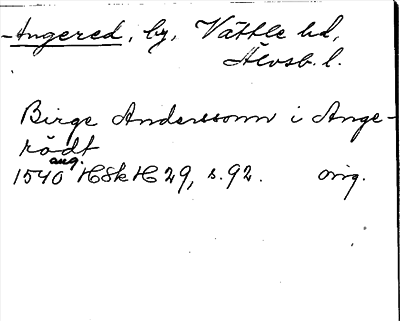 -Angered, by, Vättle hd,
Älvsb. l.
Birge Anderssonn i Ange-
rödt
aug.
1540 HSkH 29, s. 92. orig.